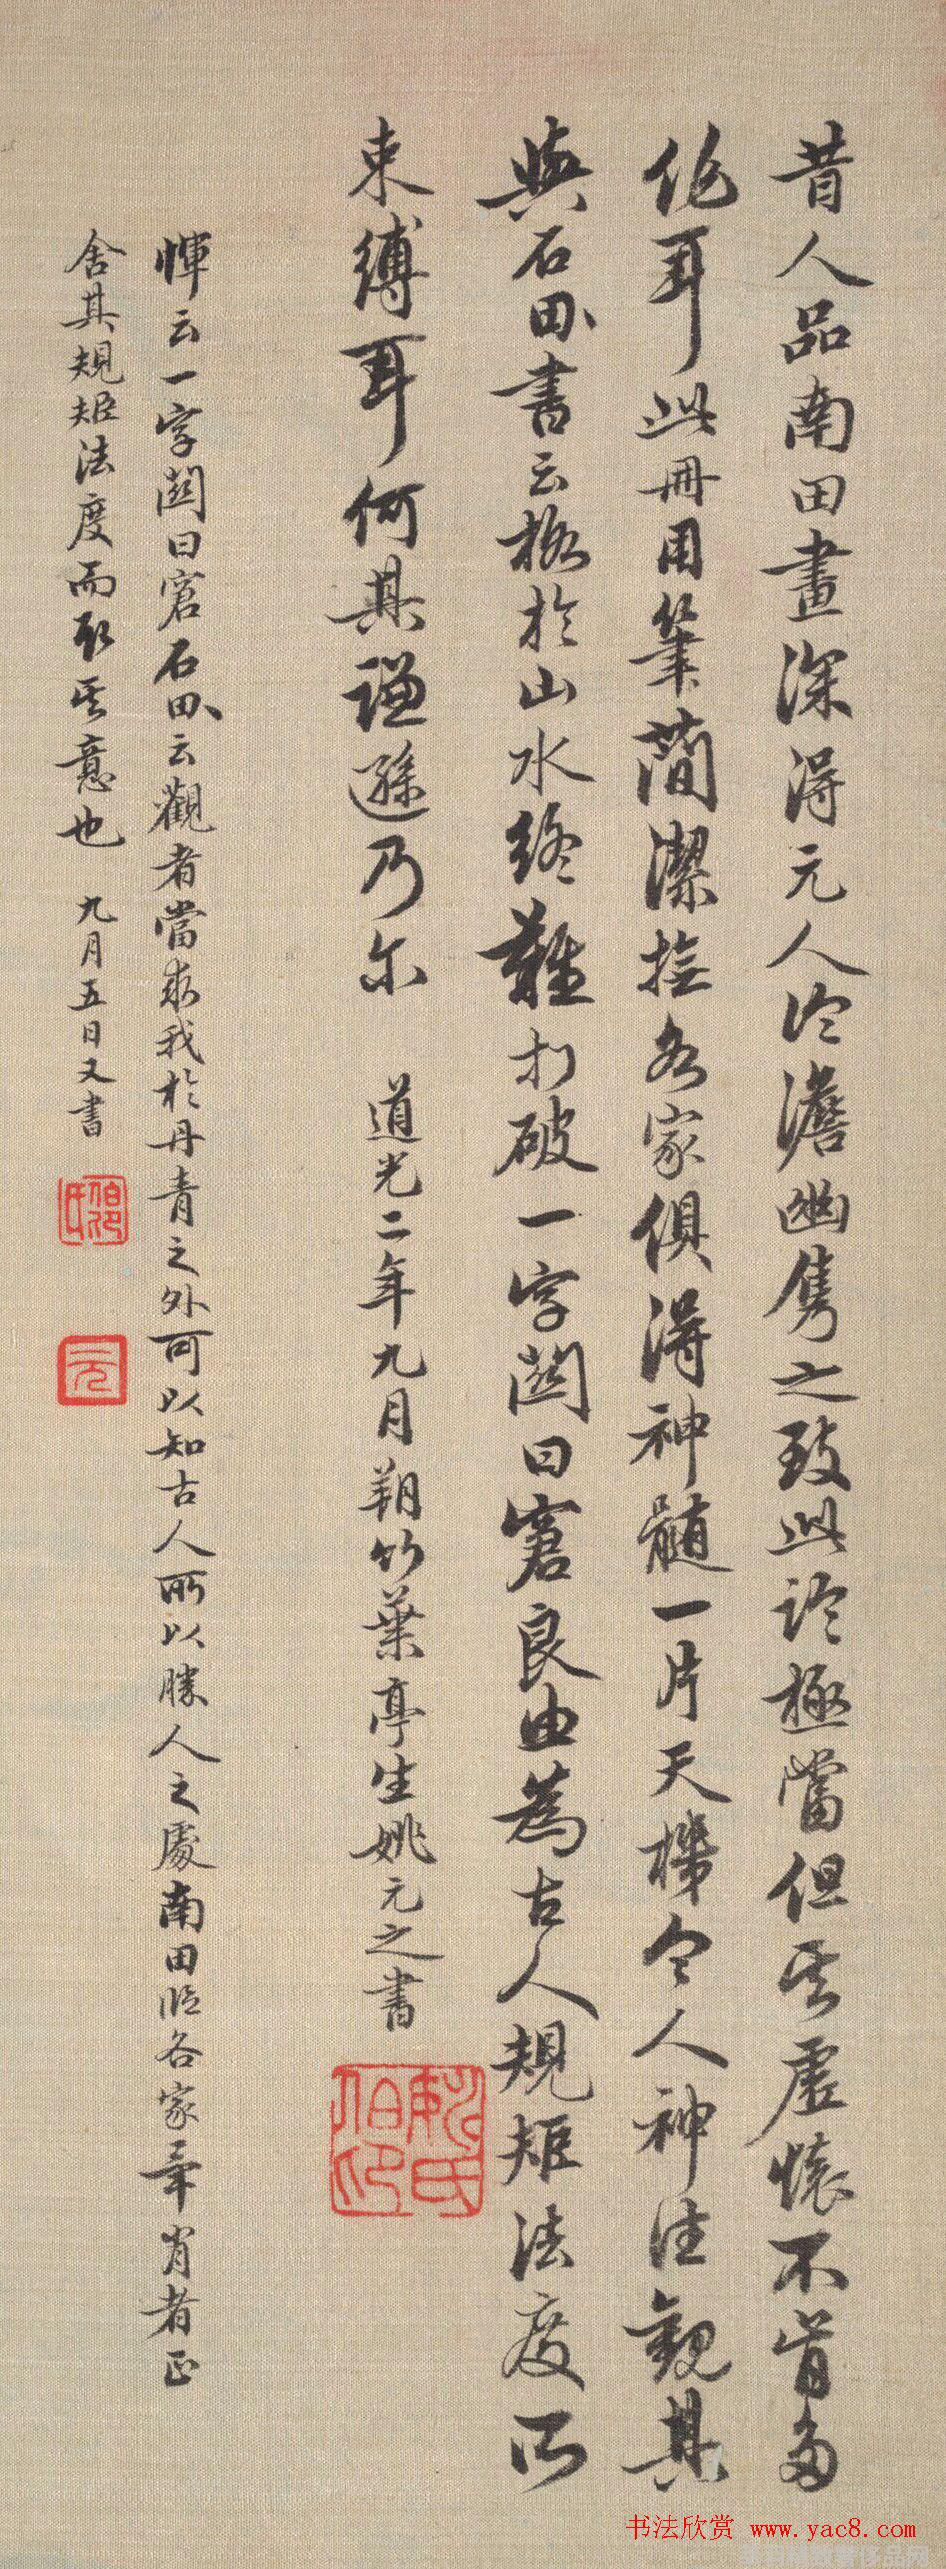 昔人品南田畫深得元人冷澹幽雋之致此論極當但其虛懷不肯多
作耳此冊用筆簡潔橅各家俱得神髓一片天機令人神往觀其
與石田書云格於山水終難打破一字關曰窘良由為古人規矩法度所
束縛耳何其謙遜乃尔 道光二年九月朔竹葉亭生姚元之書
惲云一字關曰窘石田云觀者當求我於丹青之外可以知古人所以勝人之處南田臨各家畢肖者正
舍其規矩法度而取其意也 九月五日又書
书法欣赏 www.yac8.com